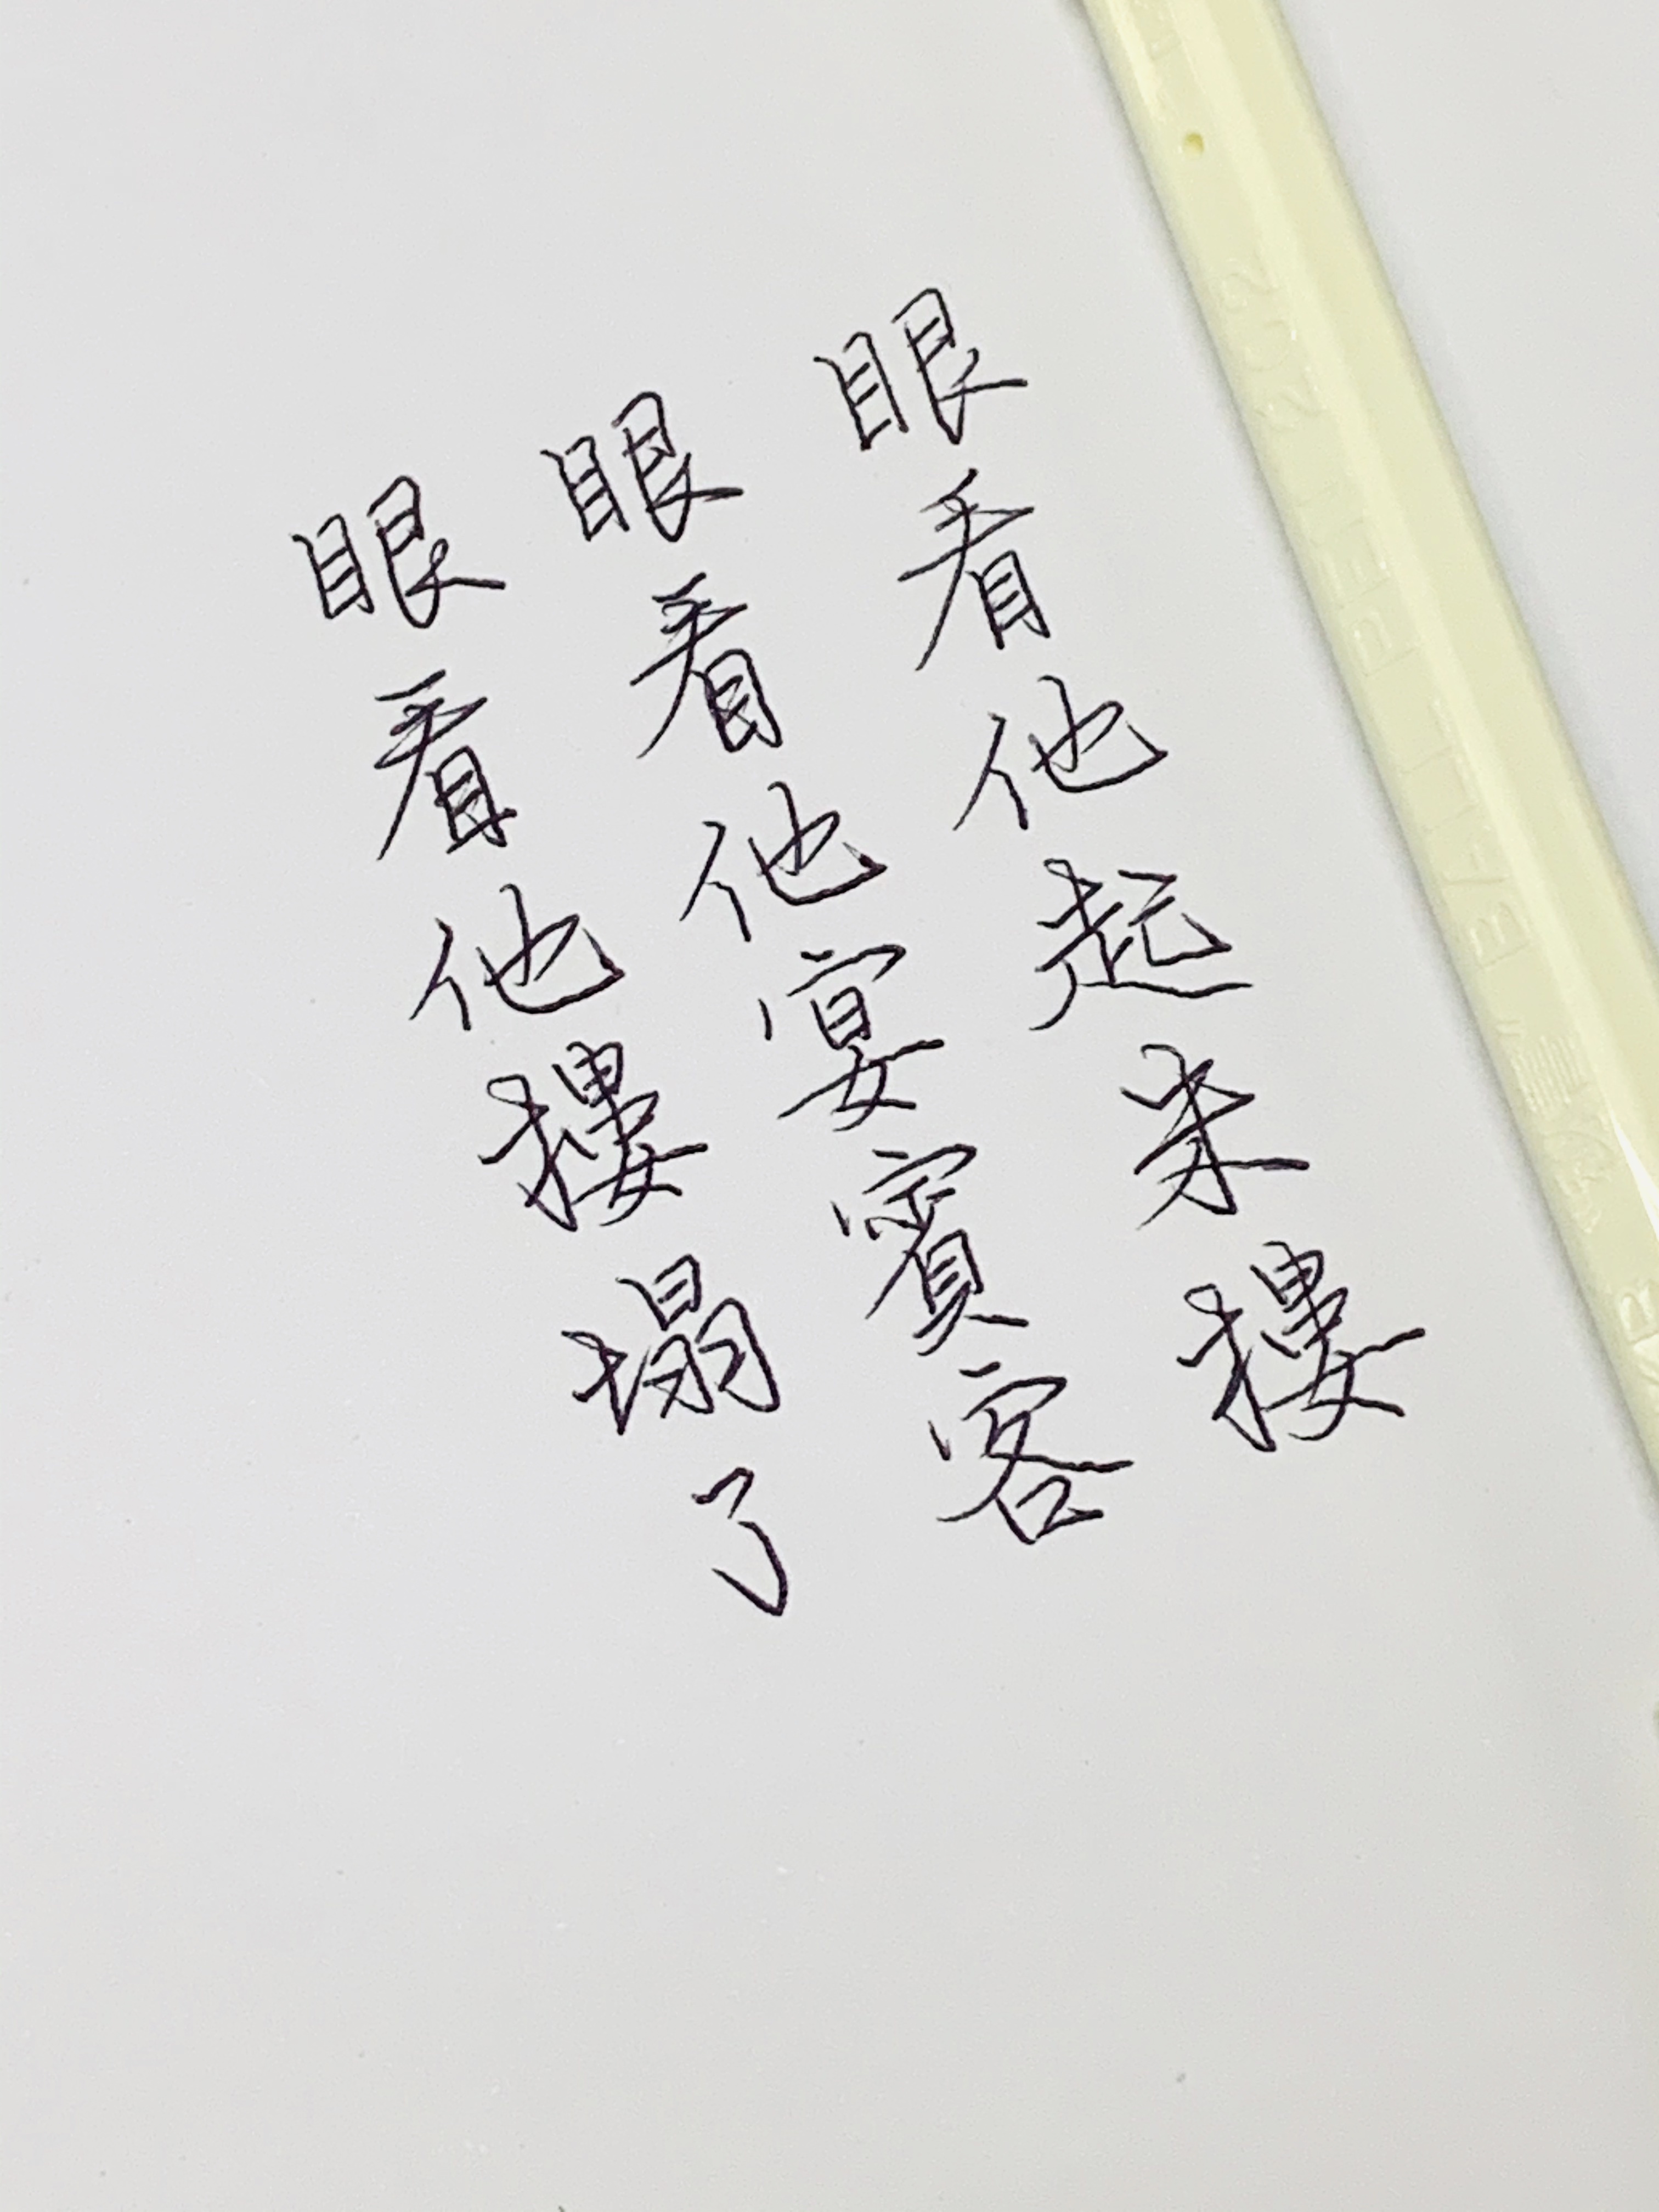 眼看他起朱樓
眼看他宴賓客
眼看他樓塌了